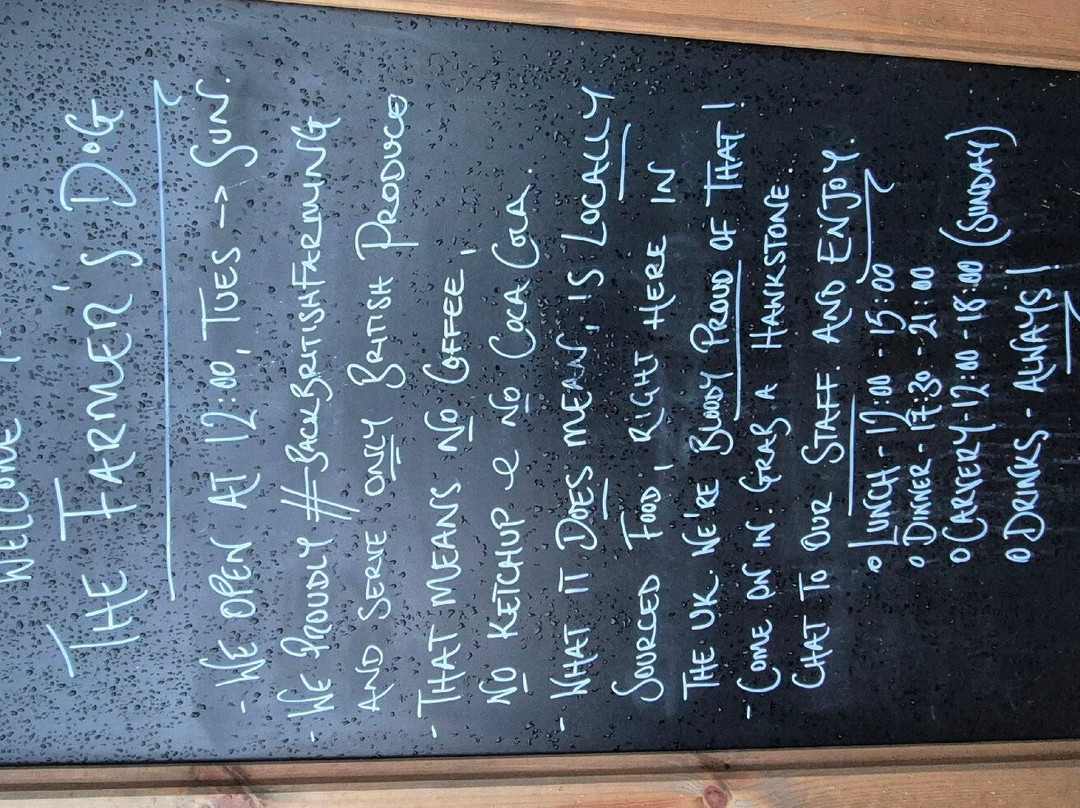 WELCOME
THE FARMER'S DOG
- WE OPEN AT 12:00, TUES -> SUN.
- WE PROUDLY #BACKBRITISHFARMING
AND SERVE ONLY BRITISH PRODUCE
- THAT MEANS NO COFFEE,
NO KETCHUP & NO COCA COLA.
- WHAT IT DOES MEAN, IS LOCALLY
SOURCED FOOD, RIGHT HERE IN
THE UK. WE'RE BLOODY PROUD OF THAT!
- COME ON IN. GRAB A HAWKSTONE.
CHAT TO OUR STAFF. AND ENJOY.
o LUNCH - 12:00 - 15:00
o DINNER - 17:30 - 21:00
o CARVERY - 12:00 - 18:00 (SUNDAY)
o DRINKS - ALWAYS!